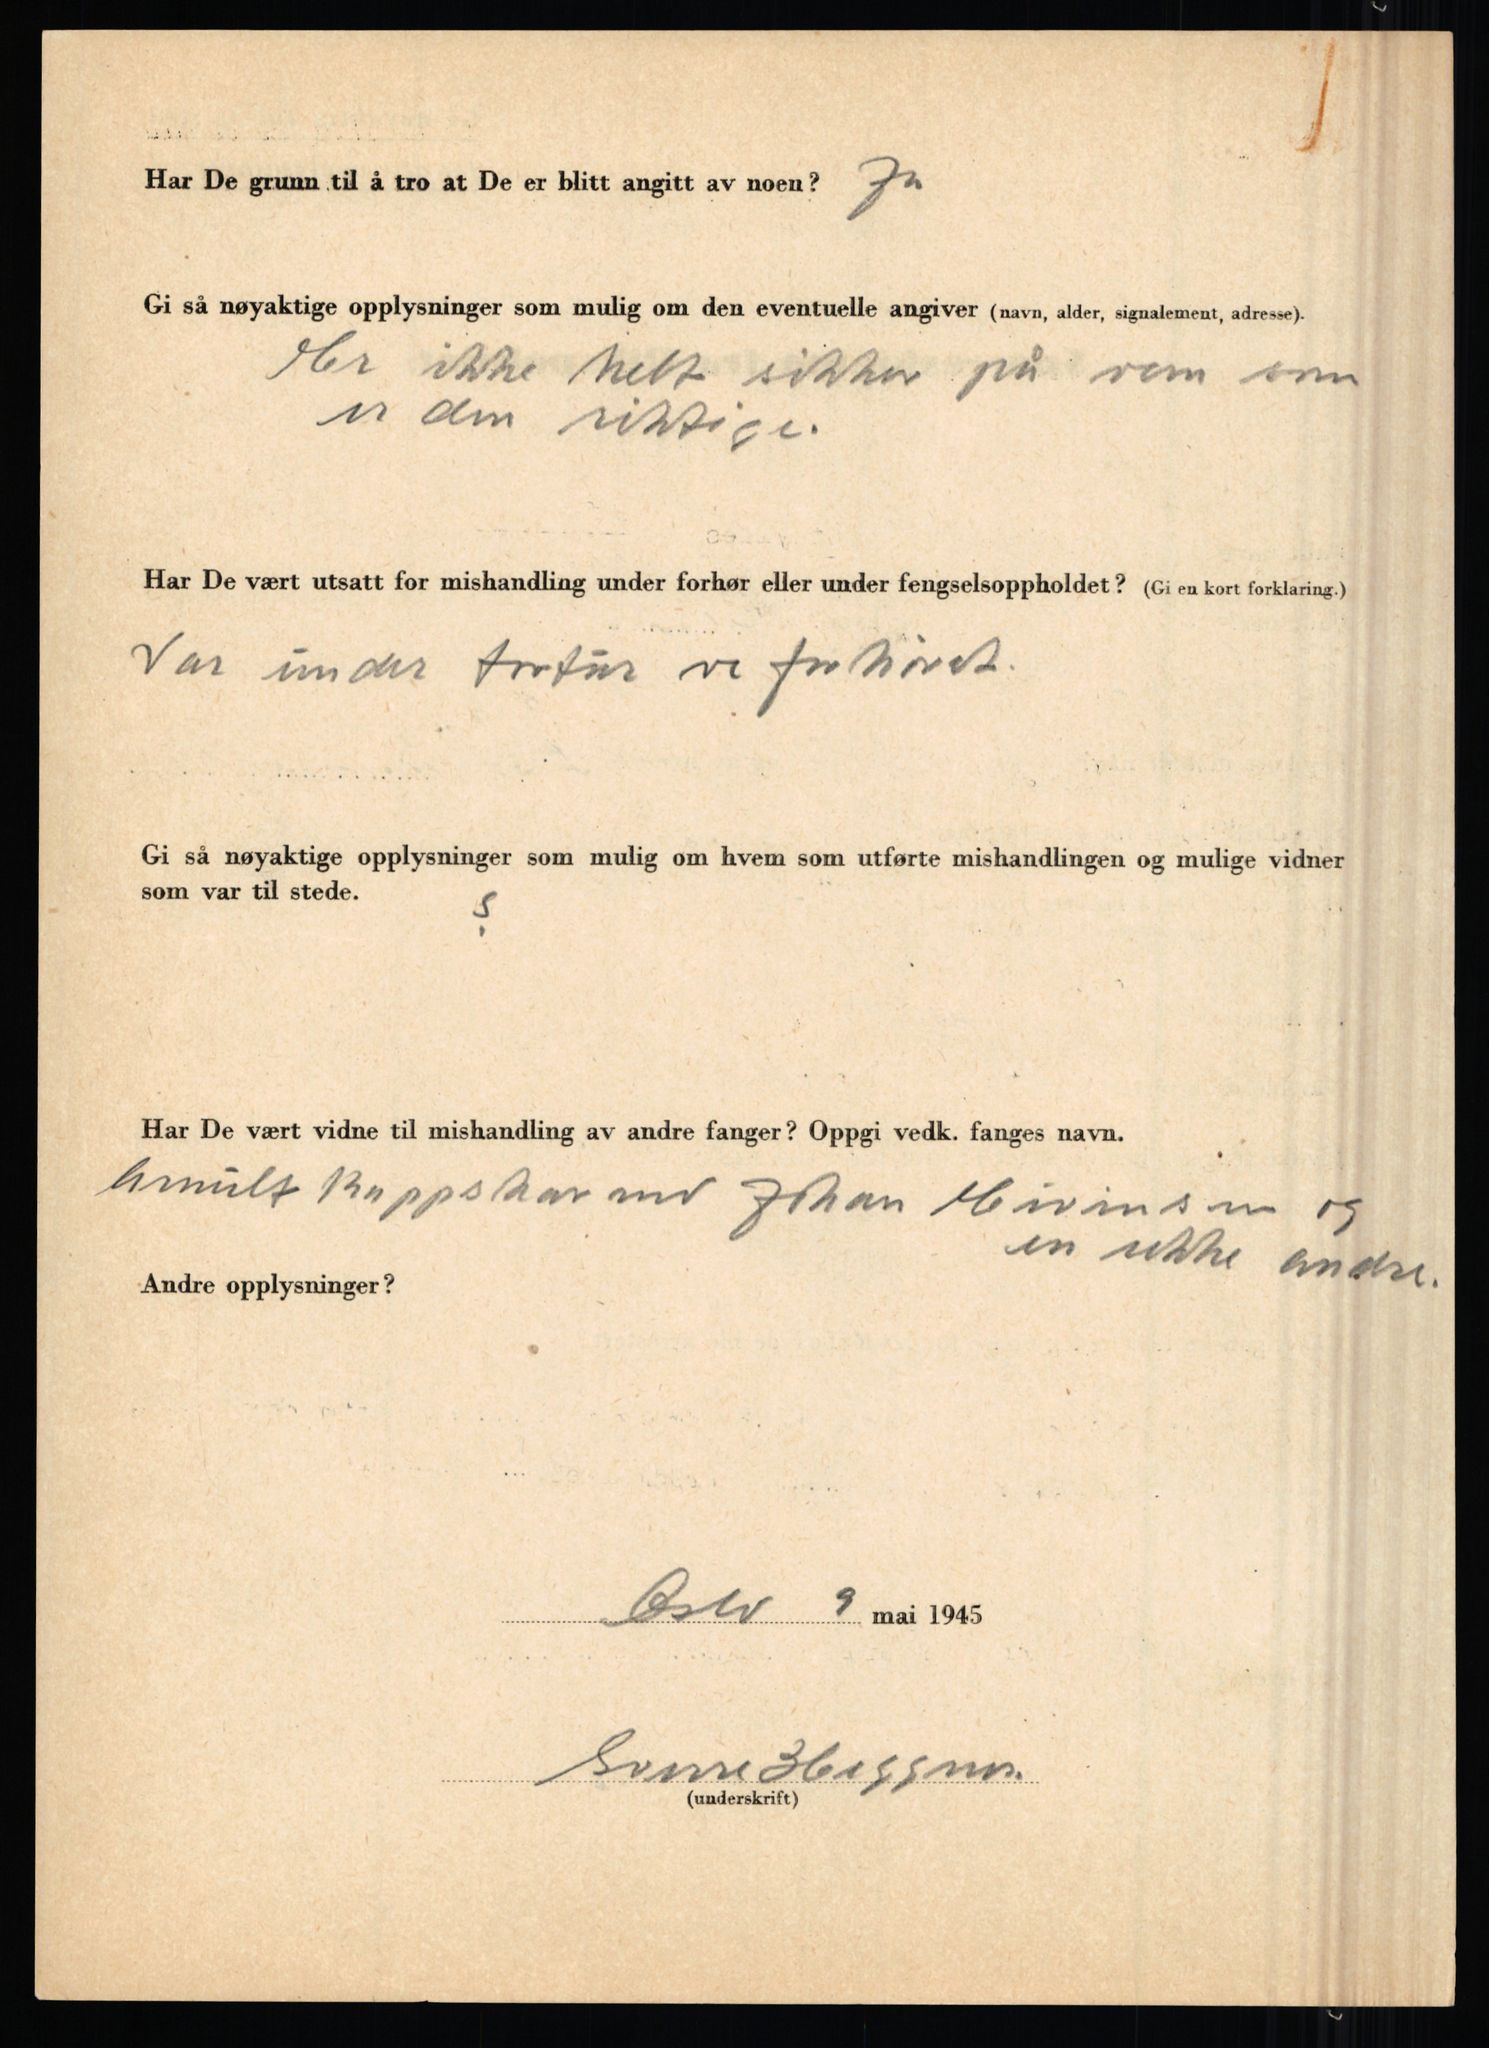 Har De grunn til å tro at De er blitt angitt av noen? Ja
Gi så nøyaktige opplysninger som mulig om den eventuelle angiver (navn, alder, signalement, adresse).
Er ikke helt sikker på vem som
er den riktige.
Har De vært utsatt for mishandling under forhør eller under fengselsoppholdet? (Gi en kort forklaring.)
Var under tortur ve forhöret.
Gi så nøyaktige opplysninger som mulig om hvem som utførte mishandlingen og mulige vidner
som var til stede. ?
Har De vært vidne til mishandling av andre fanger? Oppgi vedk. fanges navn.
Johan og
en andre.
Andre opplysninger?
Oslo 9 mai 1945
(underskrift)